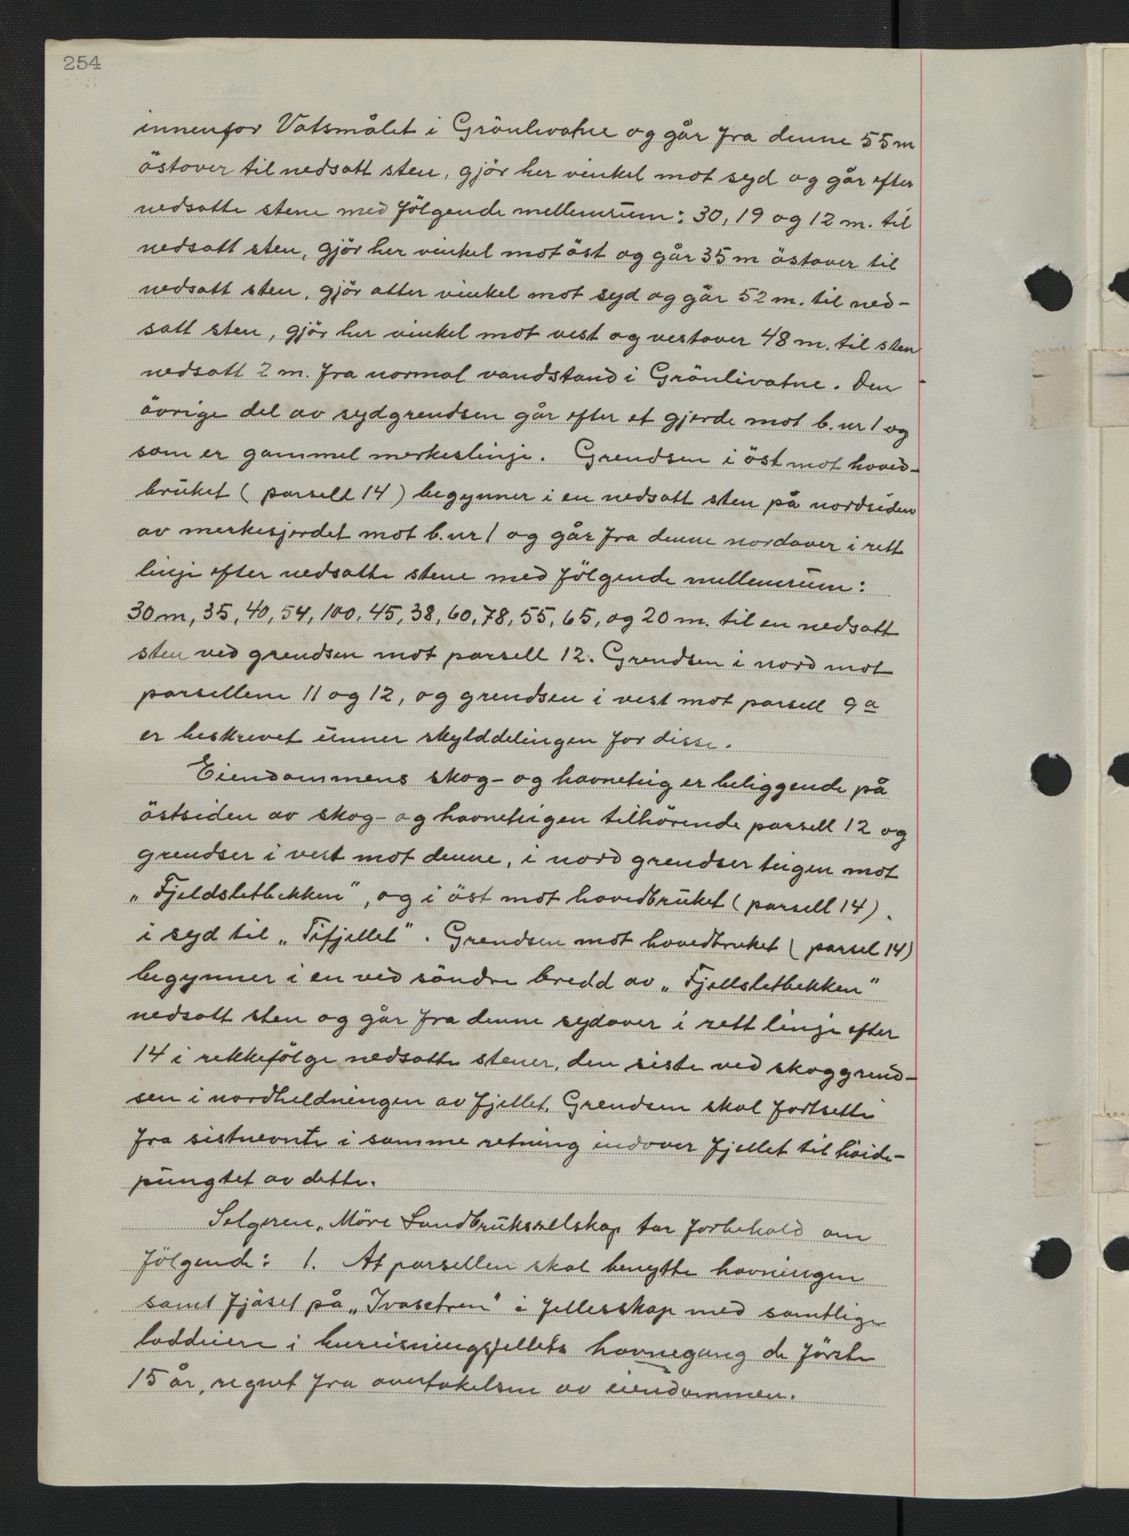 254
innenfor Vatsmålet i Grönlivatne og går fra denne 55 m
östover til nedsatt sten, gjör her vinkel mot syd og går efter
nedsatte stene med fölgende mellemrum: 30, 19 og 12 m. til
nedsatt sten, gjör her vinkel mot öst og går 35 m östover til
nedsatt sten, gjör atter vinkel mot syd og går 52 m. til ned-
satt sten, gjör her vinkel mot vest og vestover 48 m. til sten
nedsatt 2 m. fra normal vandstand i Grönlivatne. Den
övrige del av sydgrendsen går efter et gjerde mot b.nr 1 og
som er gammel merkeslinje. Grendsen i öst mot hoved-
bruket (parsell 14) begynner i en nedsatt sten på nordsiden
av merkesjerdet mot b.nr 1 og går fra denne nordover i rett
linje efter nedsatte stene med fölgende mellemrum:
30 m, 35, 40, 54, 100, 45, 38, 60, 78, 55, 65, og 20 m. til en nedsatt
sten ved grendsen mot parsell 12. Grendsen i nord mot
parsellene 11 og 12, og grendsen i vest mot parsell 9a
er beskrevet unner skylddelingen for disse.
Eiendommens skog- og havneteig er beliggende på
östsiden av skog- og havneteigen tilhörende parsell 12 og
grendser i vest mot denne, i nord grendser teigen mot
„Fjeldsletbekken", og i öst mot hovedbruket (parsell 14).
i syd til „Tifjellet". Grendsen mot hovedbruket (parsel 14)
begynner i en ved söndre bredd av „Fjellsletbekken"
nedsatt sten og går fra denne sydover i rett linje efter
14 i rekkefölge nedsatte stener, den siste ved skoggrend-
sen i nordheldningen av fjellet. Grendsen skal fortsette
fra sistnevnte i samme retning indover fjellet til höide-
pungtet av dette.
Selgeren, Möre Landbruksselskap tar forbehold om
fölgende: 1. At parsellen skal benytte havningen
samt fjöset på „Ivasetren" i fellesskap med samtlige
loddeiere i bureisningsfeltets havnegang de förste
15 år, regnet fra overtakelsen av eiendommen.